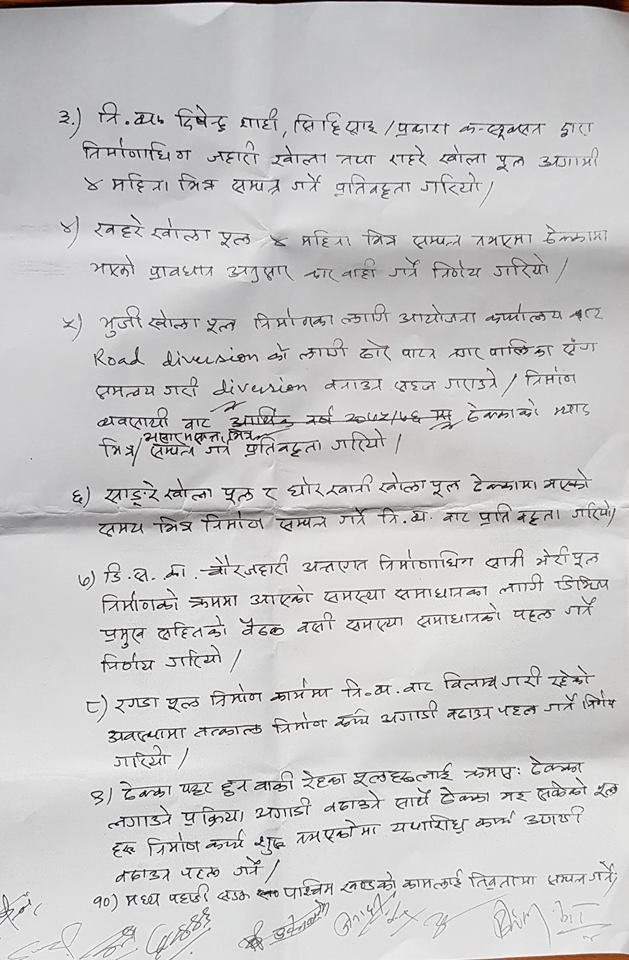 ३.) नि.व्य. दिपेन्द्र शाही, सिद्दिसाइ / प्रकाश कन्स्ट्रक्सन द्वारा
निर्माणाधिन जहारी खोला तथा राहरे खोला पूल अगामी
४ महिना भित्र सम्पन्न गर्ने प्रतिवद्दता गरियो /
४) रवहरे खोला पूल ४ महिना भित्र सम्पन्न नभएमा ठेक्कामा
भएको प्रावधान अनुसार कारवाही गर्ने निर्णय गरियो /
५) भुजी खोला पूल निर्माणका लागी आयोजना कार्यालय बाट
Road diversion को लागी ढोरपाटन नगरपालिका संग
समन्वय गरी diversion बनाउन सहज गराउने / निर्माण
व्यवसायी बाट आर्थिक वर्ष २०७५/७६ मा ठेक्काको म्याद
भित्र सम्पन्न गर्ने प्रतिवद्दता गरियो /
६) साङ्रे खोला पूल र घोर खानी खोला पूल ठेक्कामा भएको
समय भित्र निर्माण सम्पन्न गर्ने नि.व्य. बाट प्रतिवद्दता गरियो /
७) डि.स.का. चौरजहारी अन्तर्गत निर्माणाधिन सानी भेरी पूल
निर्माणको क्रममा आएको समस्या समाधानका लागी डिभिजन
प्रमुख सहितको बैठक बसी समस्या समाधानको पहल गर्ने
निर्णय गरियो /
८) रगडा पूल निर्माण कार्यमा नि.व्य. बाट विलम्ब गरी रहेको
अवस्थामा तत्काल निर्माण कार्य अगाडी बढाउन पहल गर्ने निर्णय
गरियो /
९) ठेक्का पट्टा हुन बाकी रहेका पूलहरुलाई क्रमश: ठेक्का
लगाउने प्रक्रिया अगाडी बढाउने साथै ठेक्का भइ सकेको पूल
हरु निर्माण कार्य शुरु नभएकोमा यथाशिघ्र कार्य अगाडी
बढाउन पहल गर्ने /
१०) मध्य पहाडी सडक पश्चिम खण्डको कामलाई तिव्रतामा सम्पन्न गर्ने,